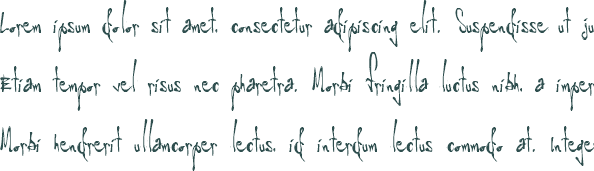 Lorem ipsum dolor sit amet, consectetur adipiscing elit. Suspendisse ut ju
Etiam tempor vel risus nec pharetra. Morbi fringilla luctus nibh, a imper
Morbi hendrerit ullamcorper lectus, id interdum lectus commodo at. Intege